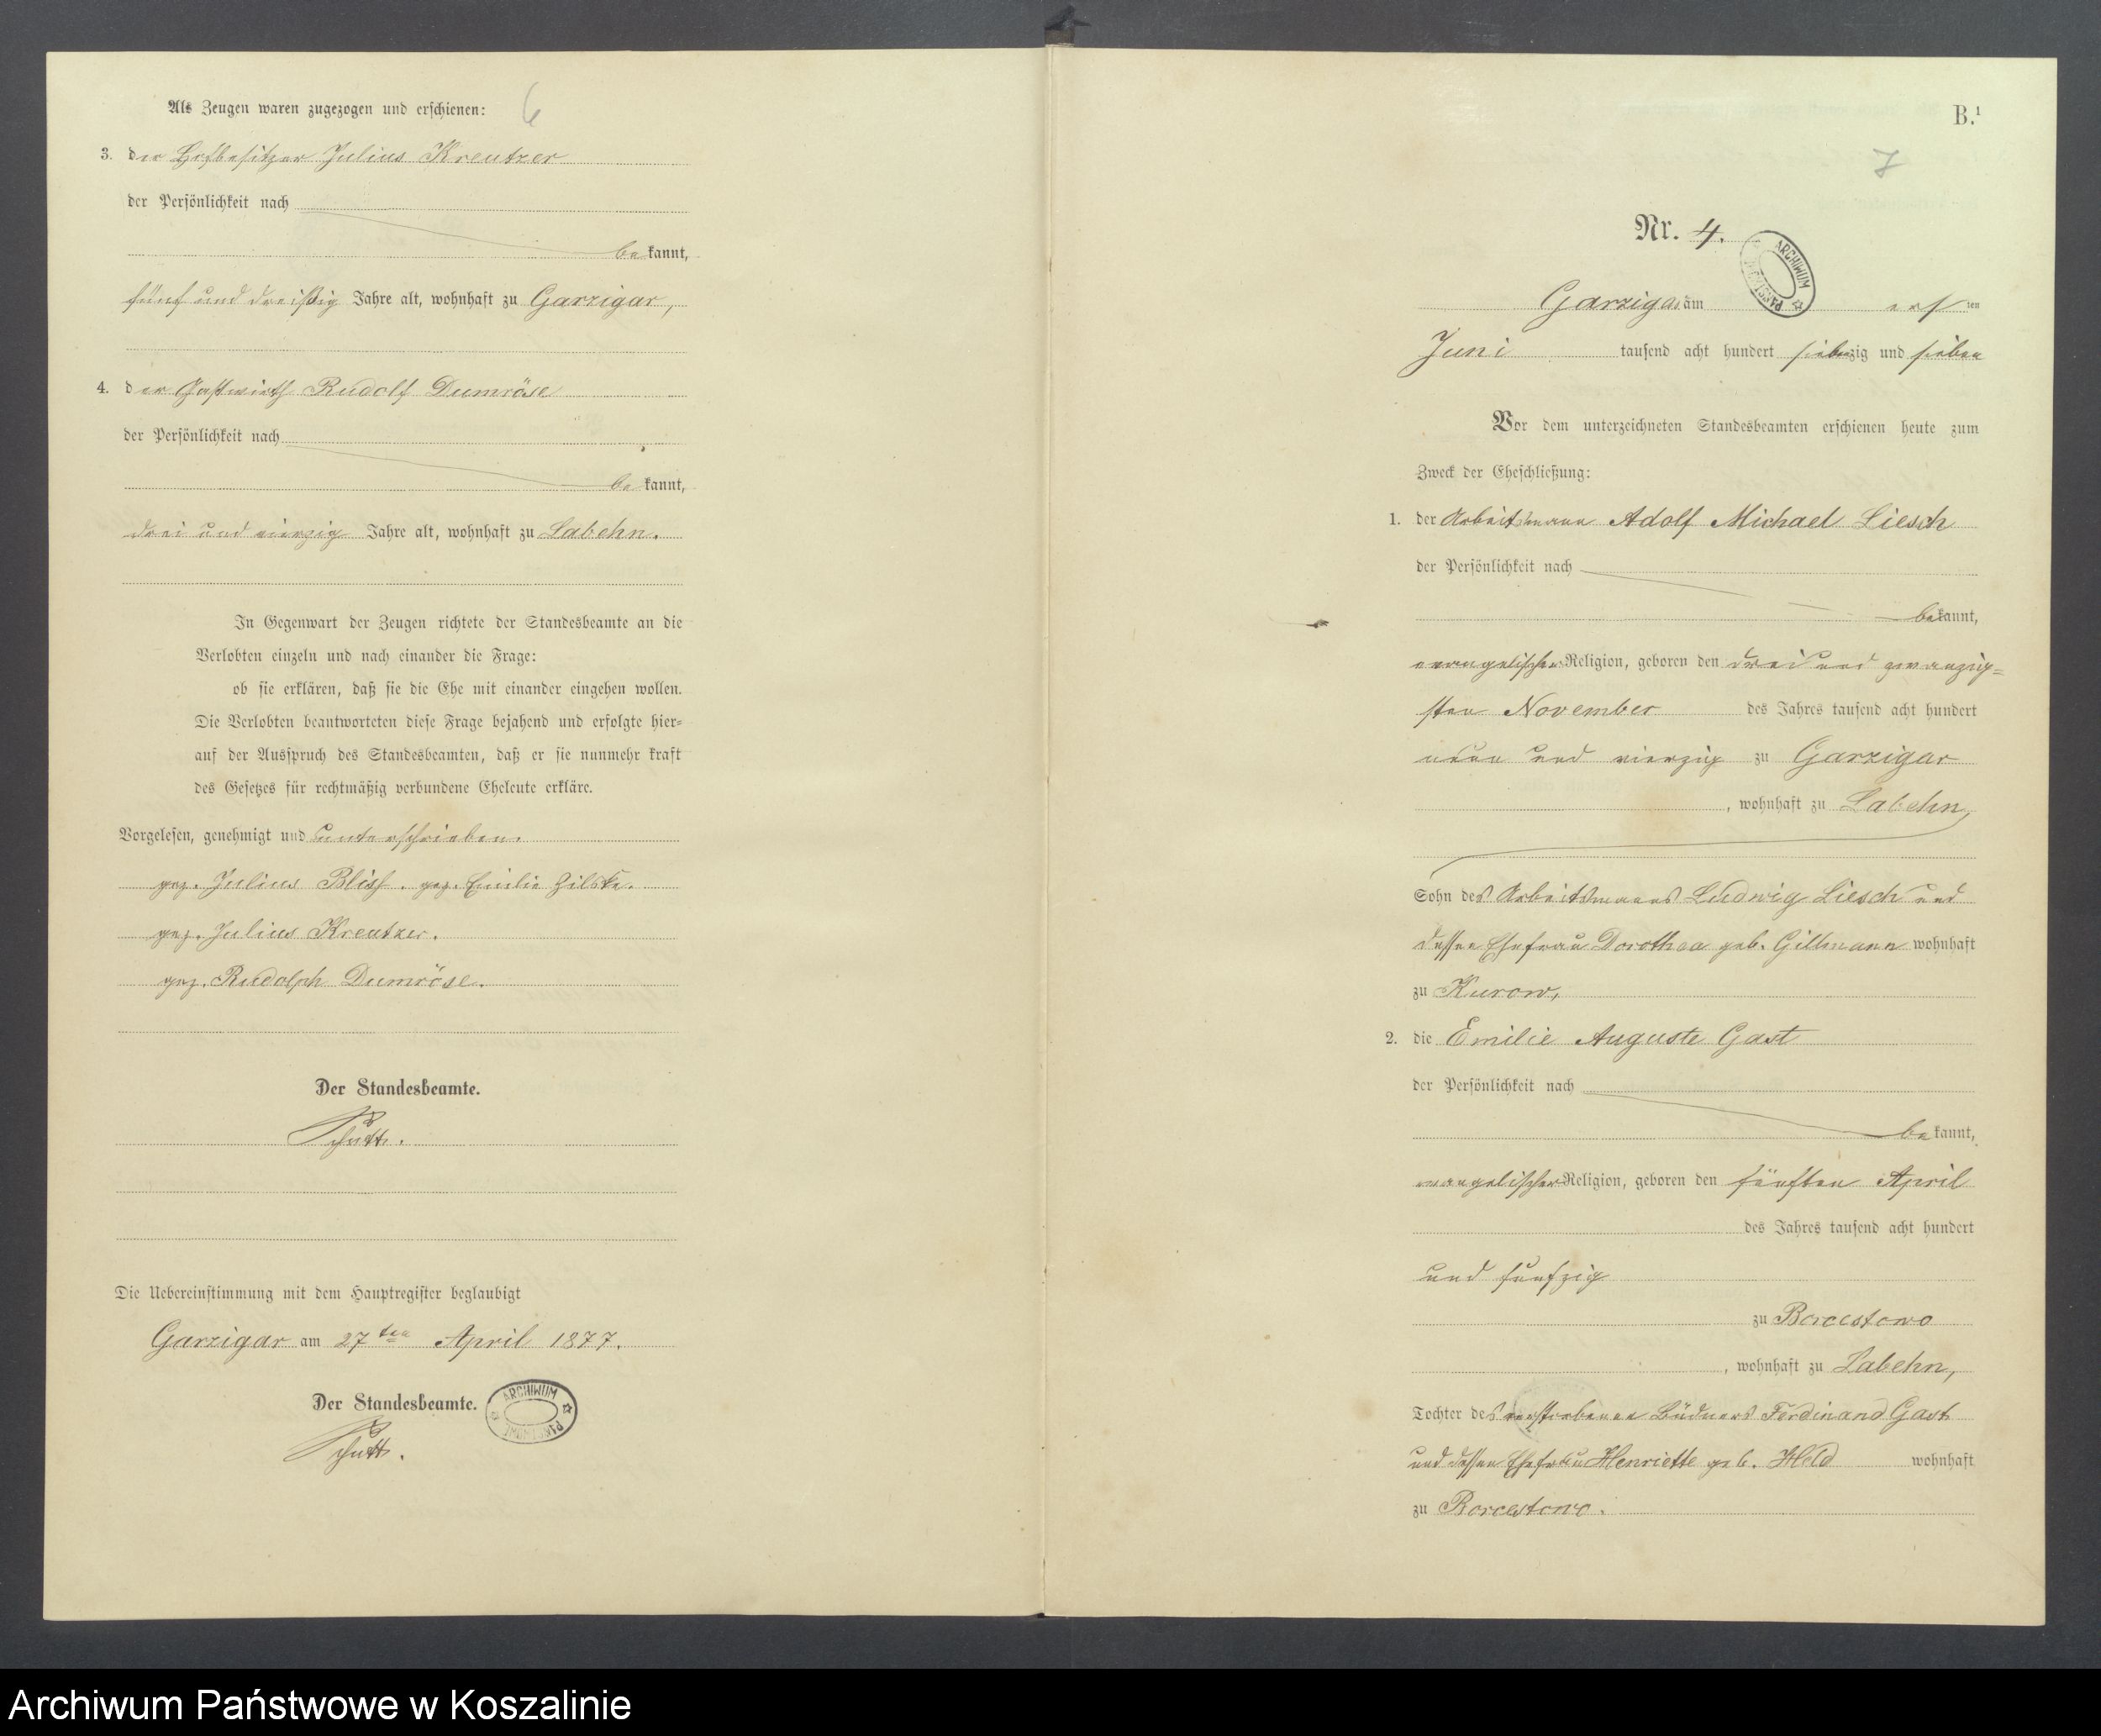 Als Zeugen waren zugezogen und erschienen:
6
3. der Hofbesitzer Julius Kreutzer
der Persönlichkeit nach
bekannt,
fünf und dreißig Jahre alt, wohnhaft zu Garzigar,
4. der Gastwirth Rudolf Dumröse
der Persönlichkeit nach
bekannt,
drei und vierzig Jahre alt, wohnhaft zu Labehn.
In Gegenwart der Zeugen richtete der Standesbeamte an die
Verlobten einzeln und nach einander die Frage:
ob sie erklären, daß sie die Ehe mit einander eingehen wollen.
Die Verlobten beantworteten diese Frage bejahend und erfolgte hier=
auf der Ausspruch des Standesbeamten, daß er sie nunmehr kraft
des Gesetzes für rechtmäßig verbundene Eheleute erkläre.
Vorgelesen, genehmigt und unterschrieben.
gez. Julius Blish. gez. Emilie Zilske.
gez. Julius Kreutzer.
gez. Rudolph Dumröse.
Der Standesbeamte.
Schutt.
Die Uebereinstimmung mit dem Hauptregister beglaubigt
Garzigar am 27ten April 1877.
Der Standesbeamte.
ARCHIWUM PAŃSTWOWE
Schutt.
B.1
7
Nr. 4.
ARCHIWUM PAŃSTWOWE
Garzigar am ersten
Juni tausend acht hundert siebenzig und sieben
Vor dem unterzeichneten Standesbeamten erschienen heute zum
Zweck der Eheschließung:
1. der Arbeitsmann Adolf Michael Liesch
der Persönlichkeit nach
bekannt,
evangelischer Religion, geboren den drei und zwanzig=
sten November des Jahres tausend acht hundert
neun und vierzig zu Garzigar
, wohnhaft zu Labehn,
Sohn des Arbeitsmanns Ludwig Liesch und
dessen Ehefrau Dorothea geb. Gillmann wohnhaft
zu Kurow,
2. die Emilie Auguste Gast
der Persönlichkeit nach
bekannt,
evangelischer Religion, geboren den fünften April
des Jahres tausend acht hundert
und funfzig
zu Borcestowo
, wohnhaft zu Labehn,
Tochter des verstorbenen Büdners Ferdinand Gast
und dessen Ehefrau Henriette geb. Held wohnhaft
zu Borcestowo.
Archiwum Państwowe w Koszalinie